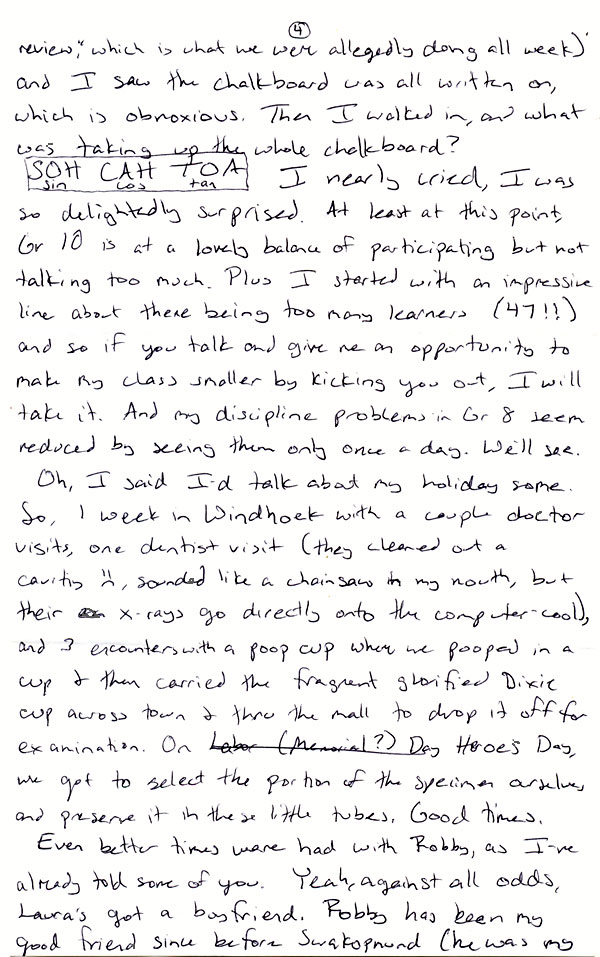 4
review," which is what we were allegedly doing all week)
and I saw the chalkboard was all written on,
which is obnoxious. Then I walked in, and what
was taking up the whole chalkboard?
SOH CAH TOA I nearly cried, I was
sin cos tan
so delightedly surprised. At least at this point,
Gr 10 is at a lovely balance of participating but not
talking too much. Plus I started with an impressive
line about there being too many learners (47!!)
and so if you talk and give me an opportunity to
make my class smaller by kicking you out, I will
take it. And my discipline problems in Gr 8 seem
reduced by seeing them only once a day. We'll see.
Oh, I said I'd talk about my holiday some.
So, 1 week in Windhoek with a couple doctor
visits, one dentist visit (they cleaned out a
cavity, sounded like a chainsaw in my mouth, but
their x-rays go directly onto the computer-cool),
and 3 encounters with a poop cup where we pooped in a
cup & then carried the fragrent glorified Dixie
cup across town & thru the mall to drop it off for
examination. On Labor (Memorial?) Day Heroes Day,
we got to select the portion of the specimen ourselves
and preserve it in these little tubes. Good times.
Even better times were had with Robby, as I've
already told some of you. Yeah, against all odds,
Laura's got a boyfriend. Robby has been my
good friend since before Swakopmund (he was my